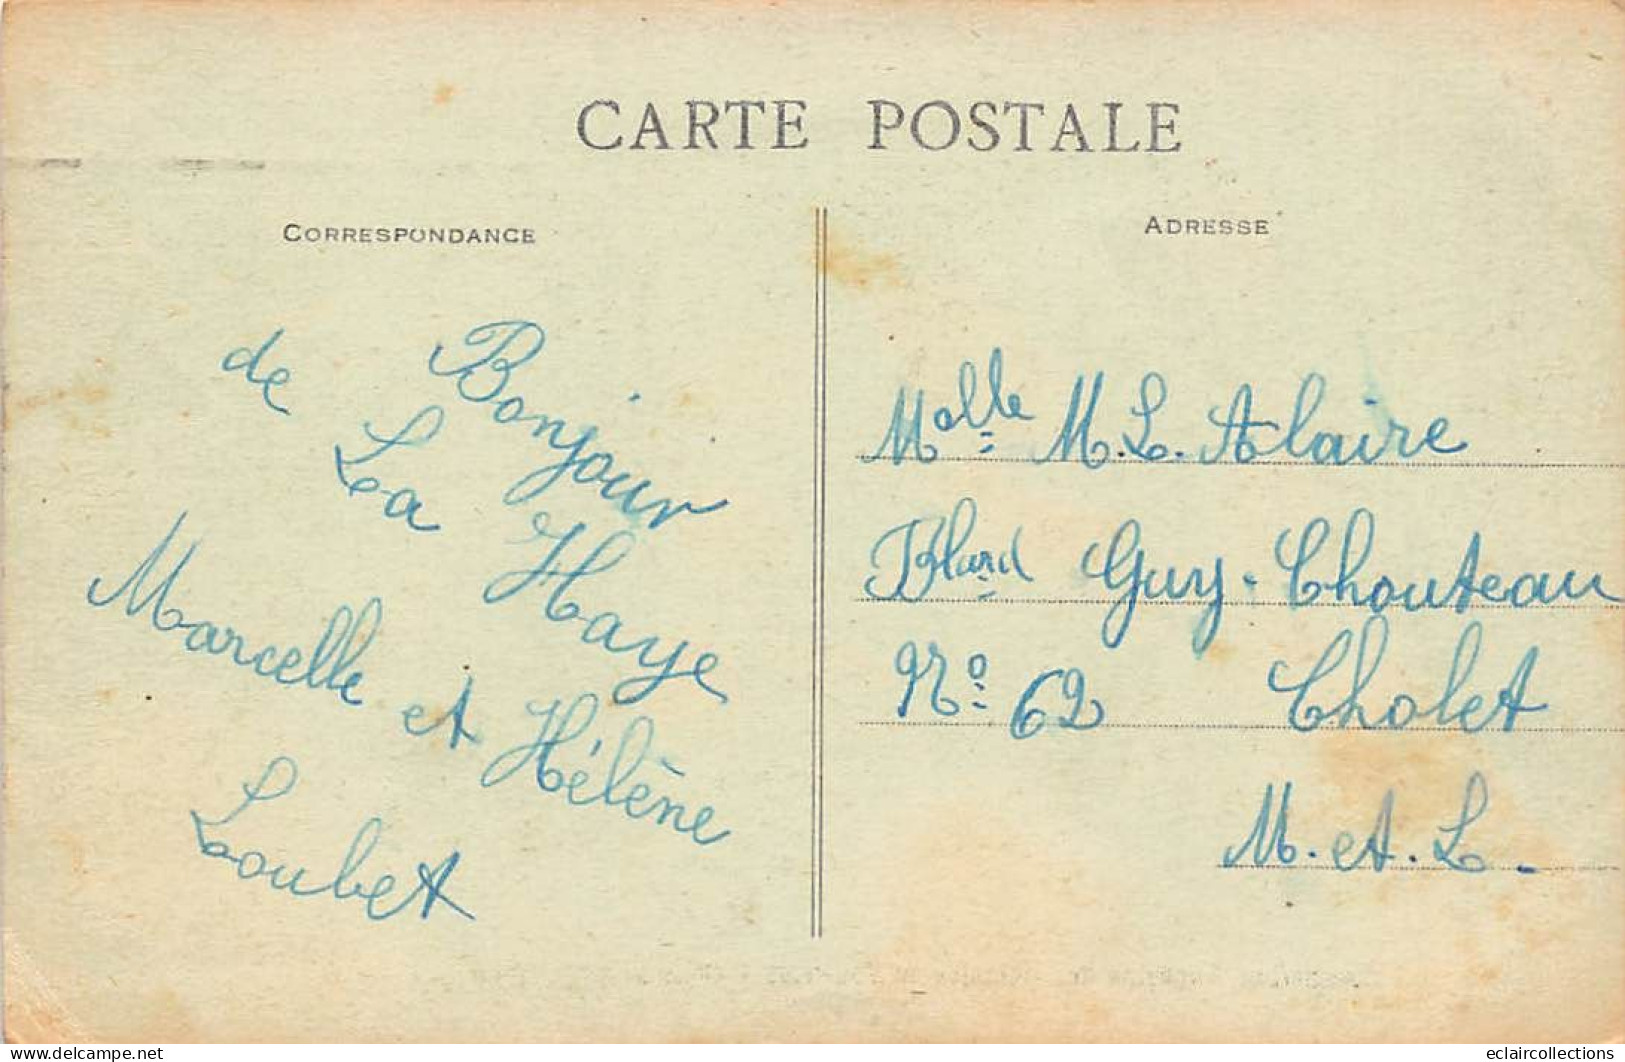 CARTE POSTALE
CORRESPONDANCE
ADRESSE
Bonjour
de La Haye
Marcelle et Hélène
Loubet
Melle M.L. Alaire
Blard Guy-Chouteau
No 62 Cholet
M. et. L.
delcampe.net
eclaircollections